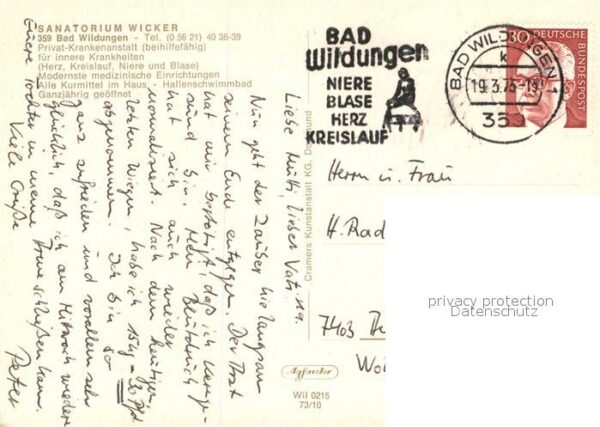 SANATORIUM WICKER
359 Bad Wildungen - Tel. (0 56 21) 40 36-39
Privat-Krankenanstalt (beihilfefähig)
für innere Krankheiten
(Herz, Kreislauf, Niere und Blase)
Modernste medizinische Einrichtungen
Alle Kurmittel im Haus - Hallenschwimmbad
Ganzjährig geöffnet
BAD
Wildungen
NIERE
BLASE
HERZ
KREISLAUF
BAD WILDUNGEN 1
k
19.3.75-19
359
80 DEUTSCHE
BUNDESPOST
Liebe Mutti, lieber Vati,
Nun geht der Zauber hie langsam
seinem Ende entgegen. Der Arzt
hat mir bestätigt, daß ich kernge-
sund bin. Mein Blutdruck
hat sich auch wieder
normalisiert. Nach dem heutigen
letzten Wiegen, habe ich 15 kg = 30 Pfd.
abgenommen. Ich bin so
ganz zufrieden und vorallem sehr
glücklich, daß ich am Mittwoch wieder
Eure Tochter in meine Arme schließen kann.
Viele Grüße
Peter
Cramers Kunstanstalt KG, Dortmund
Herrn u. Frau
H. Rad
7403
privacy protection
Datenschutz
Agfacolor
Wil 0215
73/10